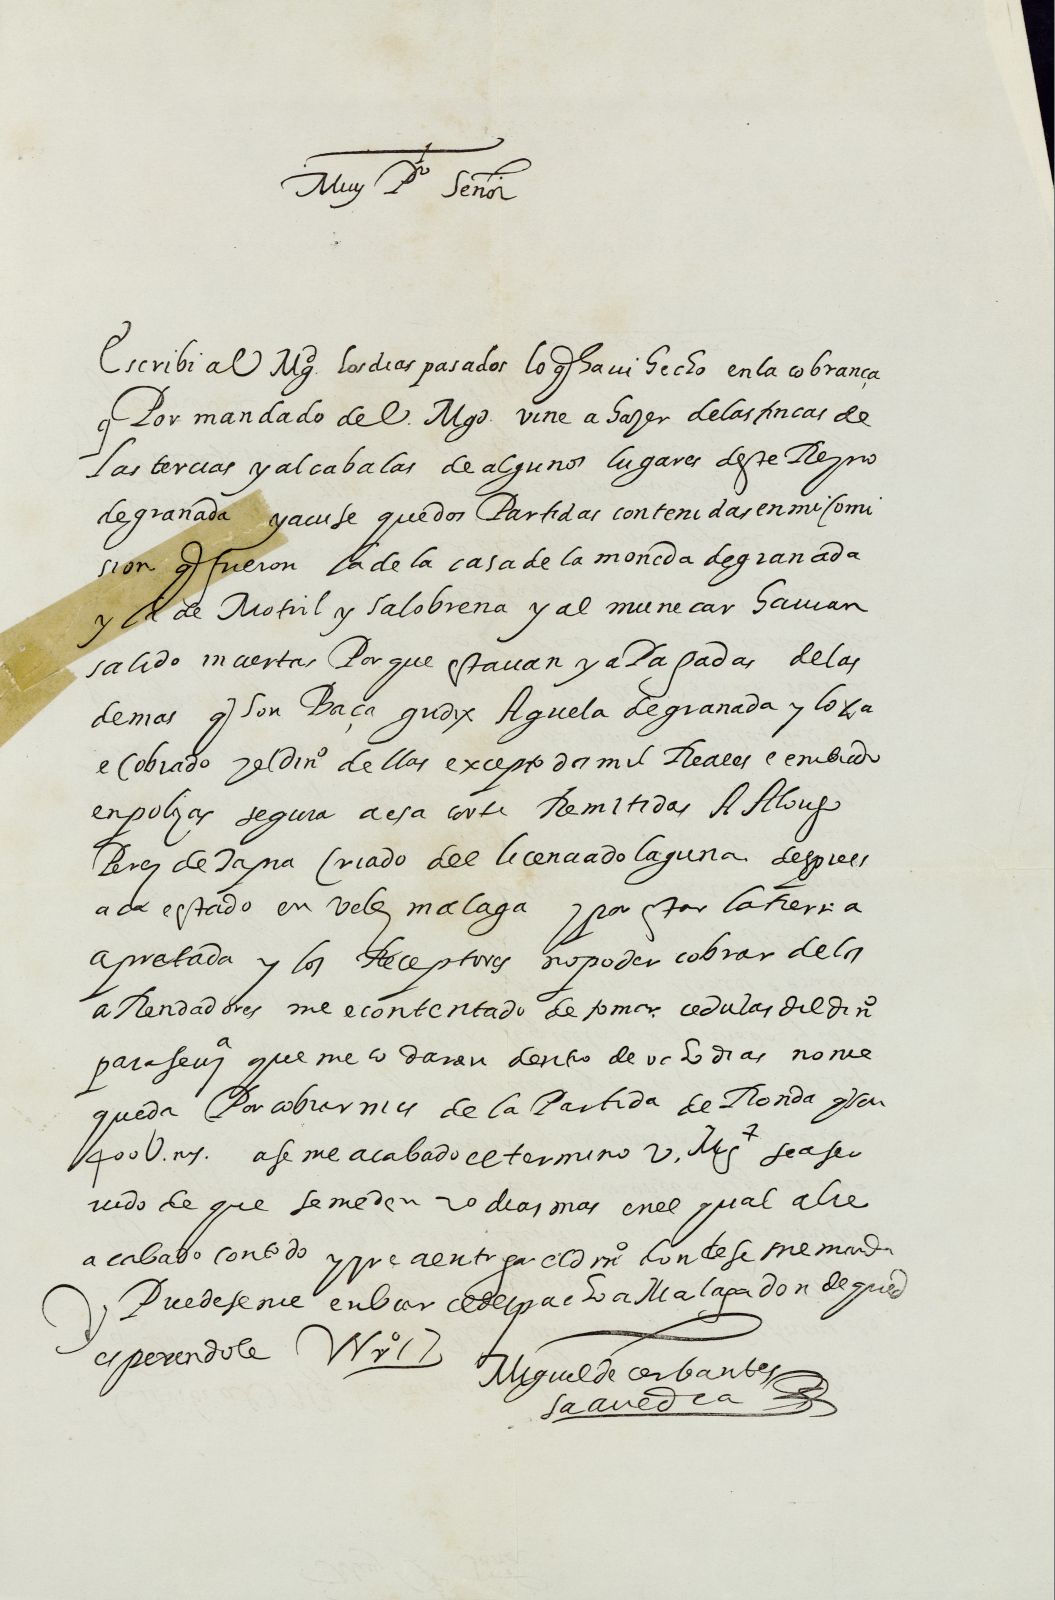 Muy P.ro Señor
Escribi a V Mgd. los dias pasados lo q haui hecho en la cobrança
q Por mandado de V. Mgd. vine a hazer de las fincas de
las tercias y alcabalas de algunos lugares deste Reyno
de granada y auise que dos Partidas contenidas en mi Comi
sion q fueron la de la casa de la moneda de granada
y la de Motril y salobrena y al munecar hauian
salido inciertas Por que estauan ya Pagadas de las
demas q son Baça gudix Aguela de granada y loxa
e Cobrado el din.o dellas excepto dos mil Reales e embiado
en polizas segura a esa corte Remitidas A Alonso
Perez de Tapia Criado del licenciado laguna despues
aca estado en velez malaga y por estar la tierra
apretada y los Receptores no poder cobrar de los
aRendadores me e contentado de tomar cedulas del din.o
para seui.a que me lo daran dentro de ocho dias no me
queda Por cobrar mas de la Partida de Ronda q son
400U.ms. a se me acabado el termino V. Mgt sea ser
uido de que se me den 20 dias mas en el qual abre
acabado con todo y yre a entregar el din.o donde se me manda
y Puedeseme enbiar el despacho a Malaga don de quedo
esperandole
Miguel de cerbantes
saauedra